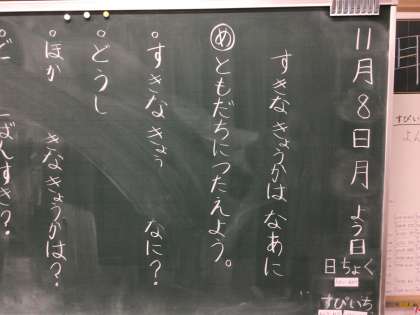 11月8日月よう日
日ちょく
すぴいち
すきなきょうかはなあに
めともだちにつたえよう。
。すきなきょう なに？
。どうし
。ほか きなきょうかは？
ばんすき？
すぴい
よん